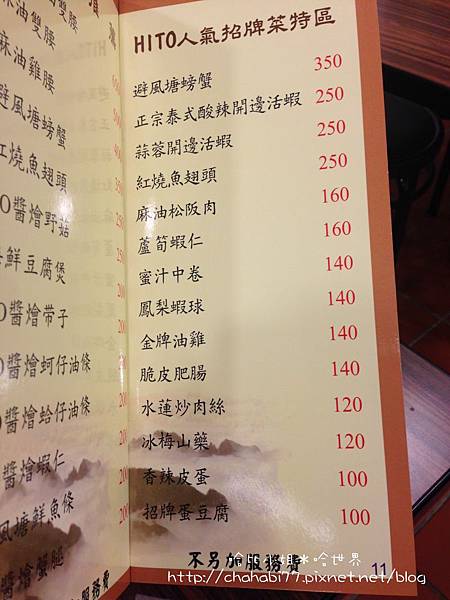 雙腰
麻油雞腰
避風塘螃蟹
紅燒魚翅頭
O醬燴野菇
鮮豆腐煲
O醬燴带子
O醬燴蚵仔油條
醬燴蛤仔油條
醬燴蝦仁
風塘鮮魚條
醬燴蟹腿
務費
HITO人氣招牌菜特區
避風塘螃蟹 350
正宗泰式酸辣開邊活蝦 250
蒜蓉開邊活蝦 250
紅燒魚翅頭 250
麻油松阪肉 160
蘆筍蝦仁 160
蜜汁中卷 140
鳳梨蝦球 140
金牌油雞 140
脆皮肥腸 140
水蓮炒肉絲 120
冰梅山藥 120
香辣皮蛋 100
招牌蛋豆腐 100
不另加服務費
11
哈世界
http://chahabi77.pixnet.net/blog